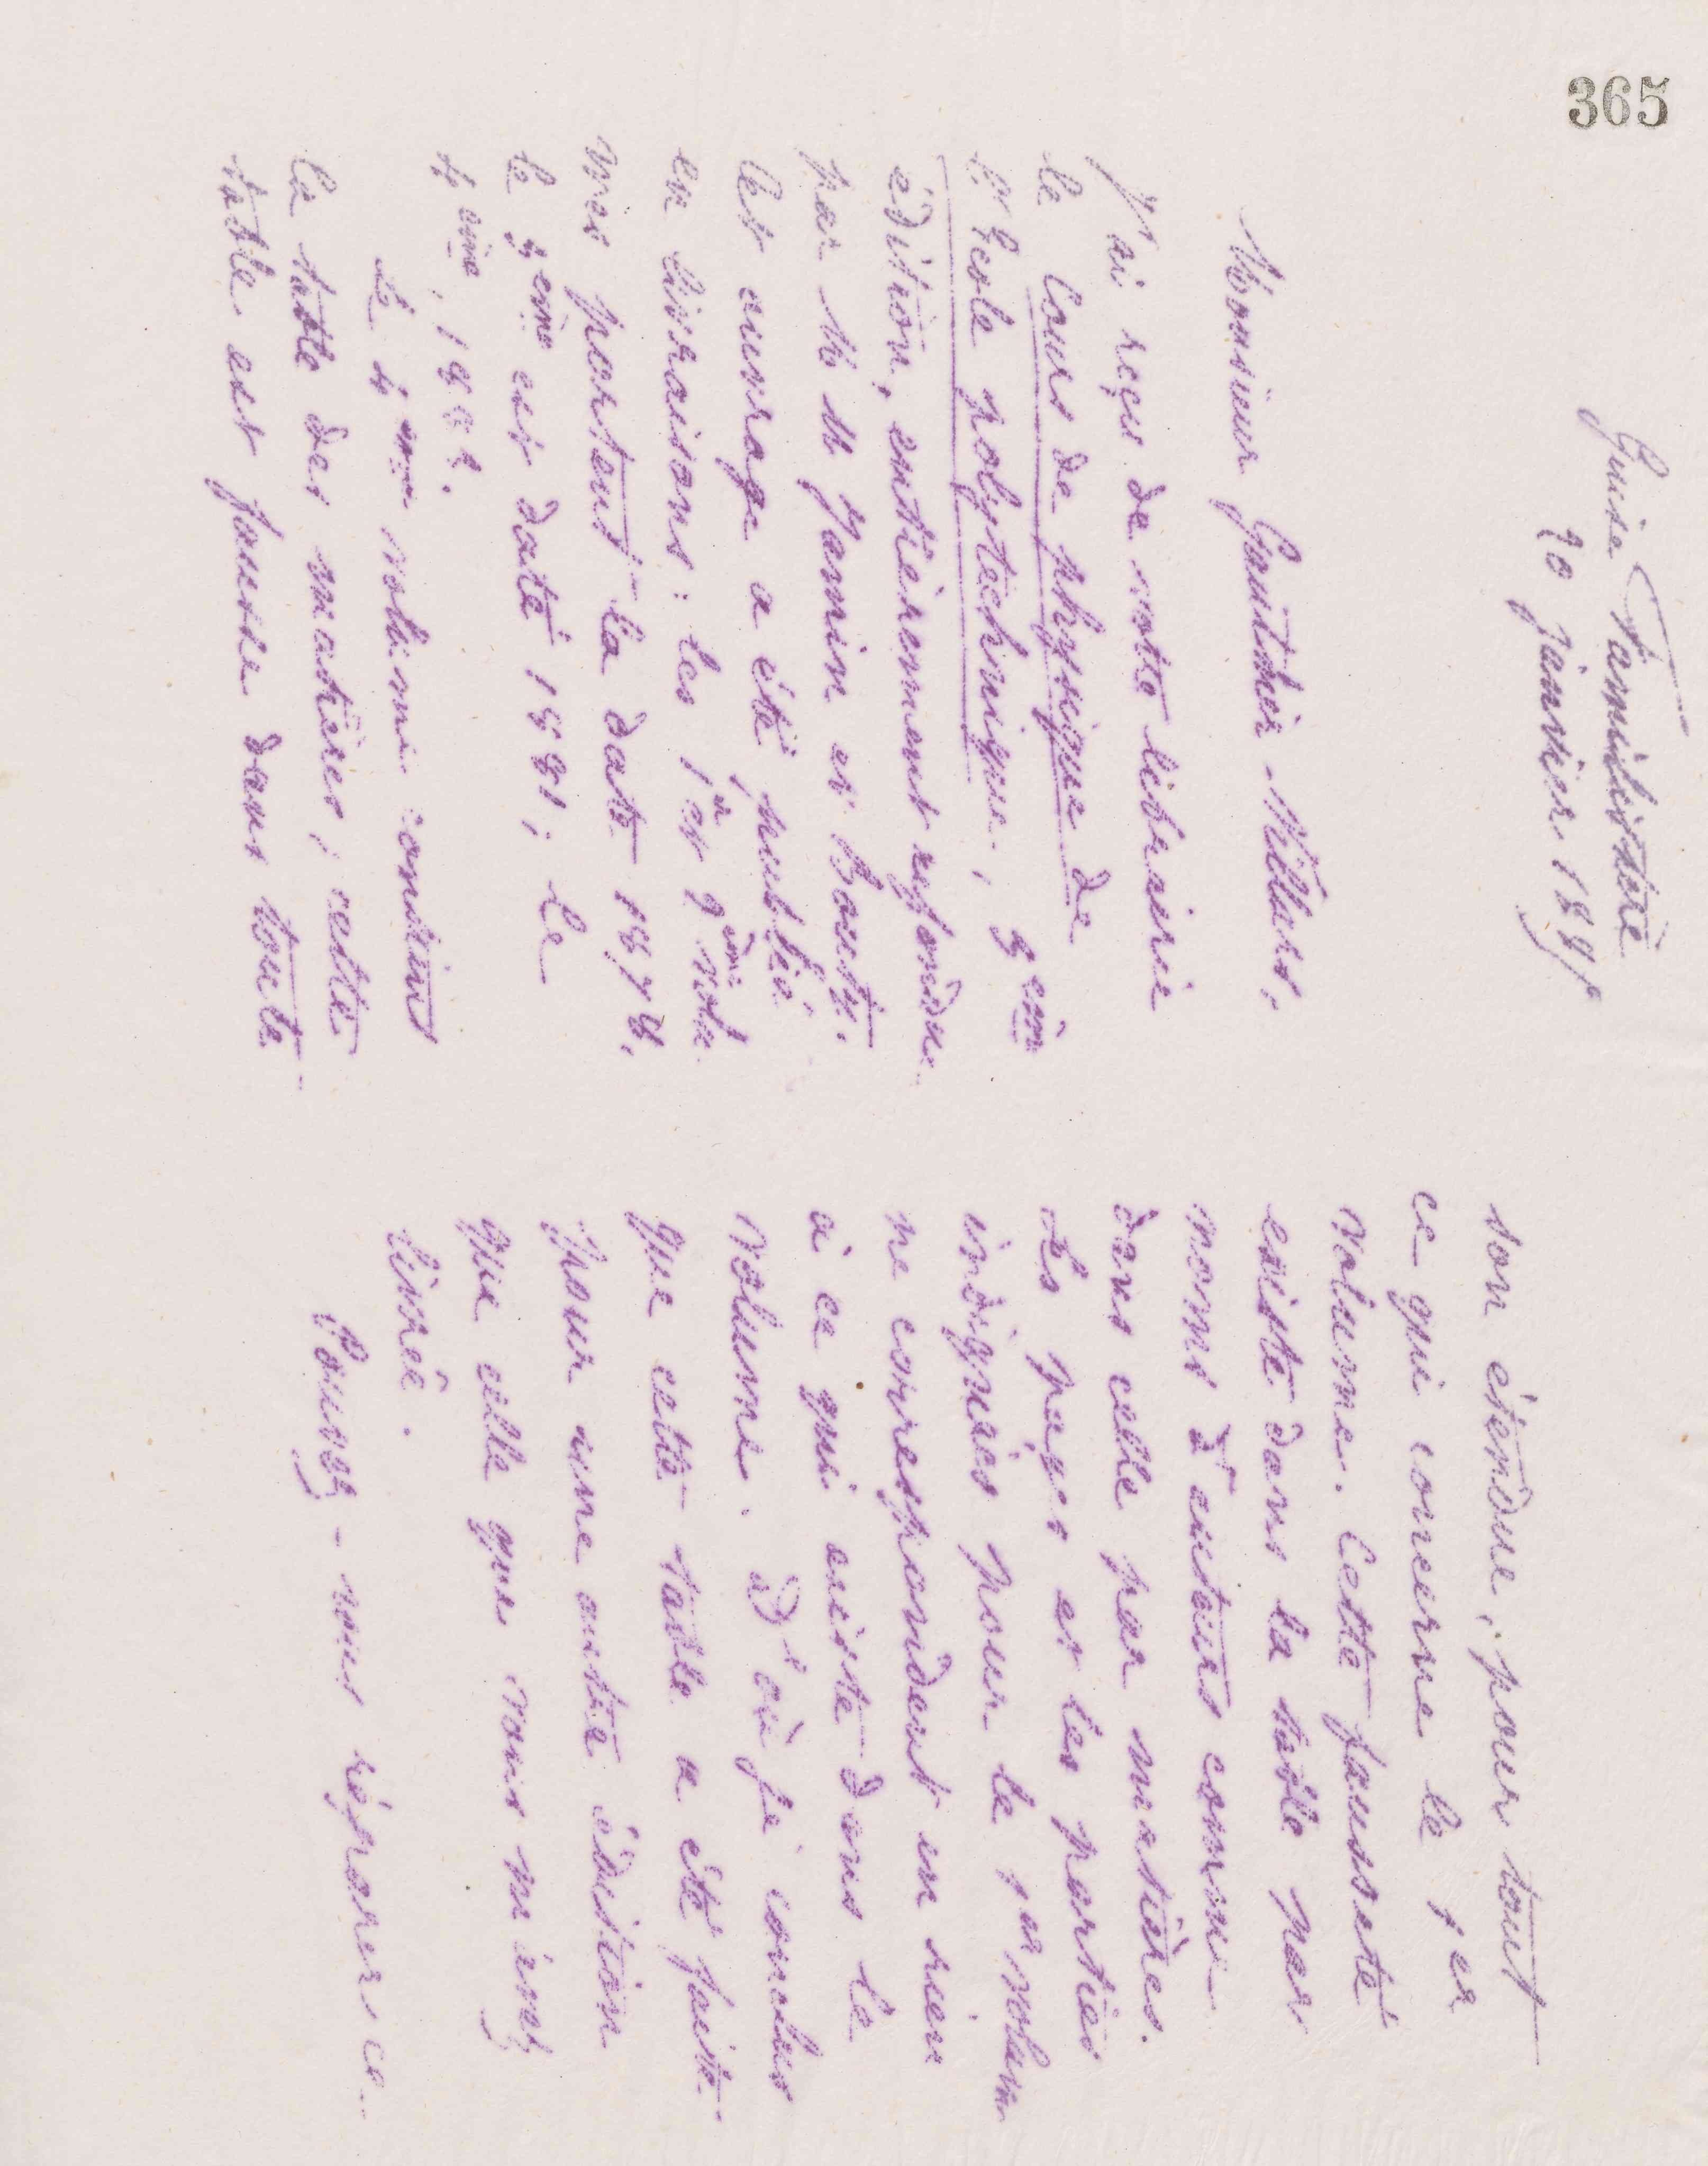 365
Guise Familistère
20 janvier 1887
Monsieur Gauthier-Villars,
J'ai reçu de votre librairie
le Cours de physique de
l'École polytechnique, 3ème
édition, entièrement refondue
par M M Jamin et Bouty.
Cet ouvrage a été publié
en livraisons: les 1er et 2ème volu
mes portent la date 1878,
le 3eme est daté 1881, le
4eme, 1882.
Le 4eme volume contient
la table des matières, cette
table est fausse dans toute
son étendue, pour tout
ce qui concerne le 1er
volume. Cette fausseté
existe dans la table par
noms d'auteurs comme
dans celle par matières.
Les pages et les parties
indiquées pour le 1er volume
ne correspondent en rien
à ce qui existe dans le
volume. D'où je conclus
que cette table a été faite
pour une autre édition
que celle que vous m'avez
livrée.
Pouvez-vous réparer ce